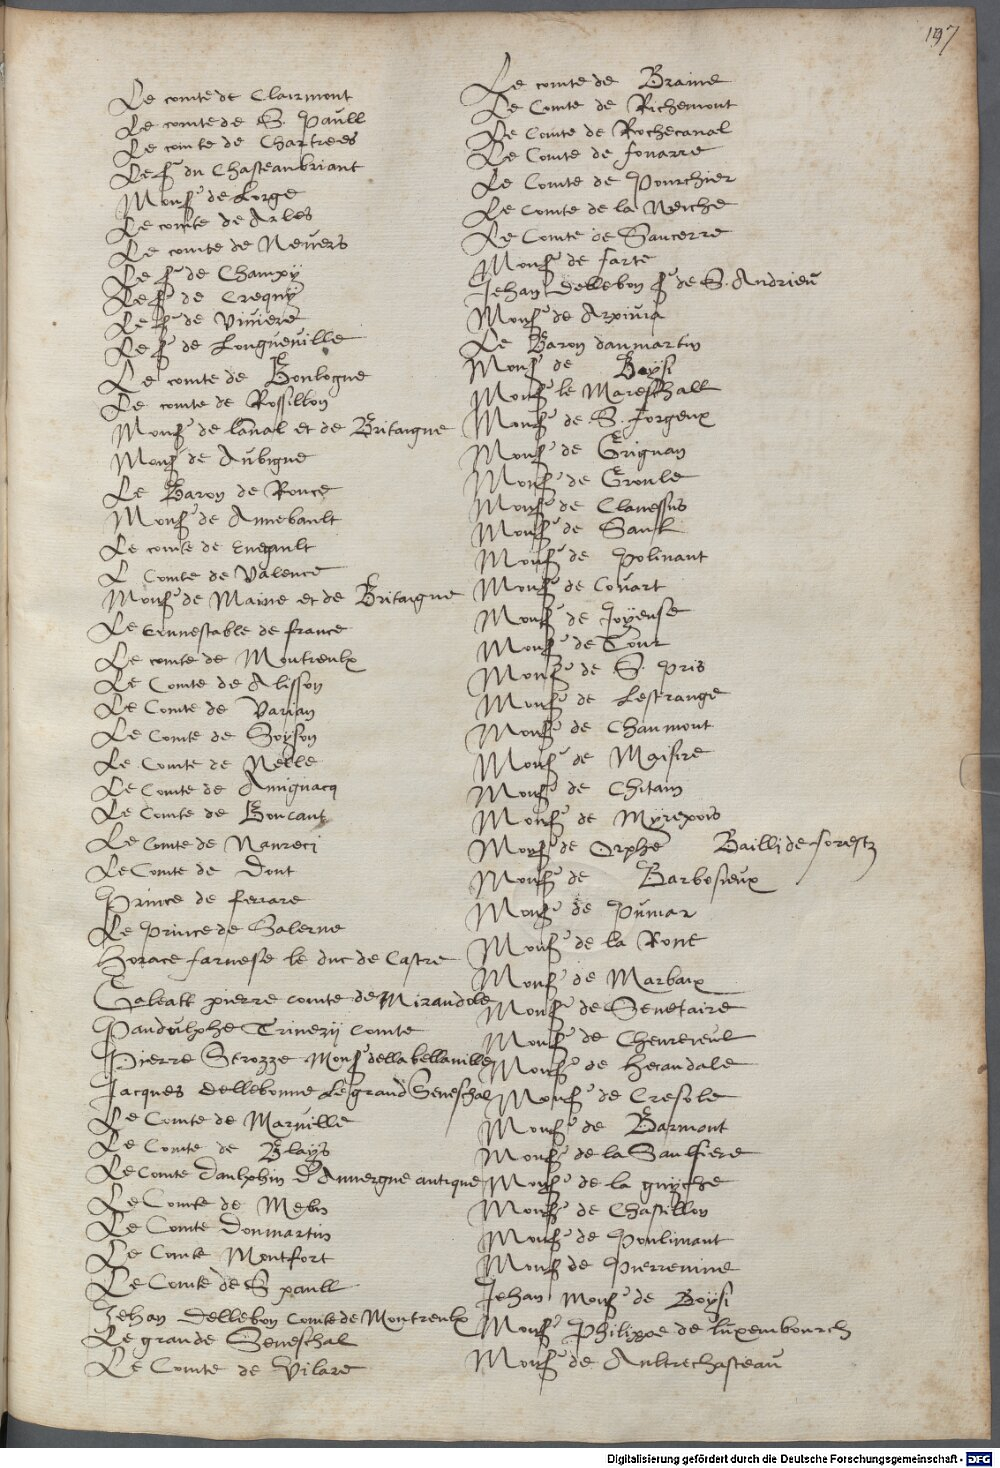 197
Le comte de Clairmont
Le comte de S. Paull
Le comte de Chartrees
Le Sr du Chasteaubriant
Monsr de Lorge
Le comte de Arles
Le comte de Nevers
Le Sr de Champÿ
Le Sr de Crequÿ
Le Sr de Viviere
Le Sr de Longueville
Le comte de Boulogne
Le comte de Rossillon
Monsr de lanal et de Britaigne
Monsr de Aubigne
Le Baron de Ronce
Monsr de Annebault
Le comte de
L Comte de Valence
Monsr de Maine et de Britaigne
Le Connestable de france
Le comte de Montreulx
Le Comte de Alisson
Le Comte de Varian
Le Comte de Soyson
Le Comte de Nelle
Le Comte de Amignacq
Le Comte de Boucant
Le Comte de Naureci
Le Comte de Dont
Prince de ferrare
Le Prince de Salerne
Horace farnese le duc de Castre
Galeatt pierre comte de Mirandole
Pandulphe Trinezij Comte
Pierre Strozze Monsr della bellaville
Jacques dellebonne Le grand Seneschal
Le Comte de Marville
Le Comte de Blays
Le Comte Daulphin d'Anvergne antique
Le Comte de Melun
Le Comte Donmartin
Le Comte Montfort
Le Comte de S paull
Jehan dellebon Comte de Montreulx
Le grande Seneschal
Le Comte de Vilare
Le comte de Braine
Le Comte de Richemont
Le Comte de Rochecanal
Le Comte de fonarre
Le Comte de Pourchier
Le Comte de la Neiche
Le Comte de Sancerre
Monsr de farte
Jehan dellebon Sr de S. Andrieu
Monsr de Arxivia
Le Baron danmartin
Monsr de Boysi
Monsr le Mareschall
Monsr de S. forgeux
Monsr de Grignan
Monsr de Groule
Monsr de Clavessus
Monsr de Sault
Monsr de Polinant
Monsr de Couart
Monsr de Joyeuse
Monsr de Tour
Monsr de S. Pris
Monsr de Lestrange
Monsr de Chaumont
Monsr de Maisire
Monsr de Chitain
Monsr de Myrepois
Monsr de Orphe Bailli de forestz
Monsr de Barbosieux
Monsr de Pumar
Monsr de la Rone
Monsr de Marbaix
Monsr de Senetaire
Monsr de Chevreieul
Monsr de Herandale
Monsr de Cresole
Monsr de Barmont
Monsr de la Saulsiere
Monsr de la guyche
Monsr de Chastillon
Monsr de Poulinant
Monsr de Pierrevive
Jehan Monsr de Boysi
Monsr Philippe de luxembourch
Monsr de Aultrechasteau
Digitalisierung gefördert durch die Deutsche Forschungsgemeinschaft - DFG